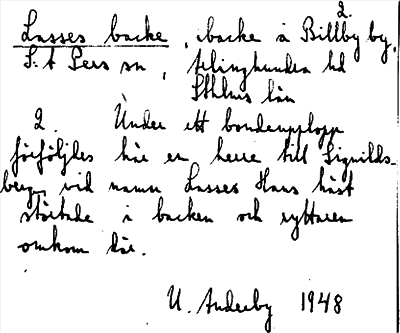 2.
Lasses backe, backe å Billby by,
S:t Pers sn, Ärlinghundra hd
Sthlms län
2. Under ett bondeupplopp
förföljdes här en herre till Sigvilds-
berg, vid namn Lasses Hans häst
störtade i backen och ryttaren
omkom där.
U. Anderby 1948